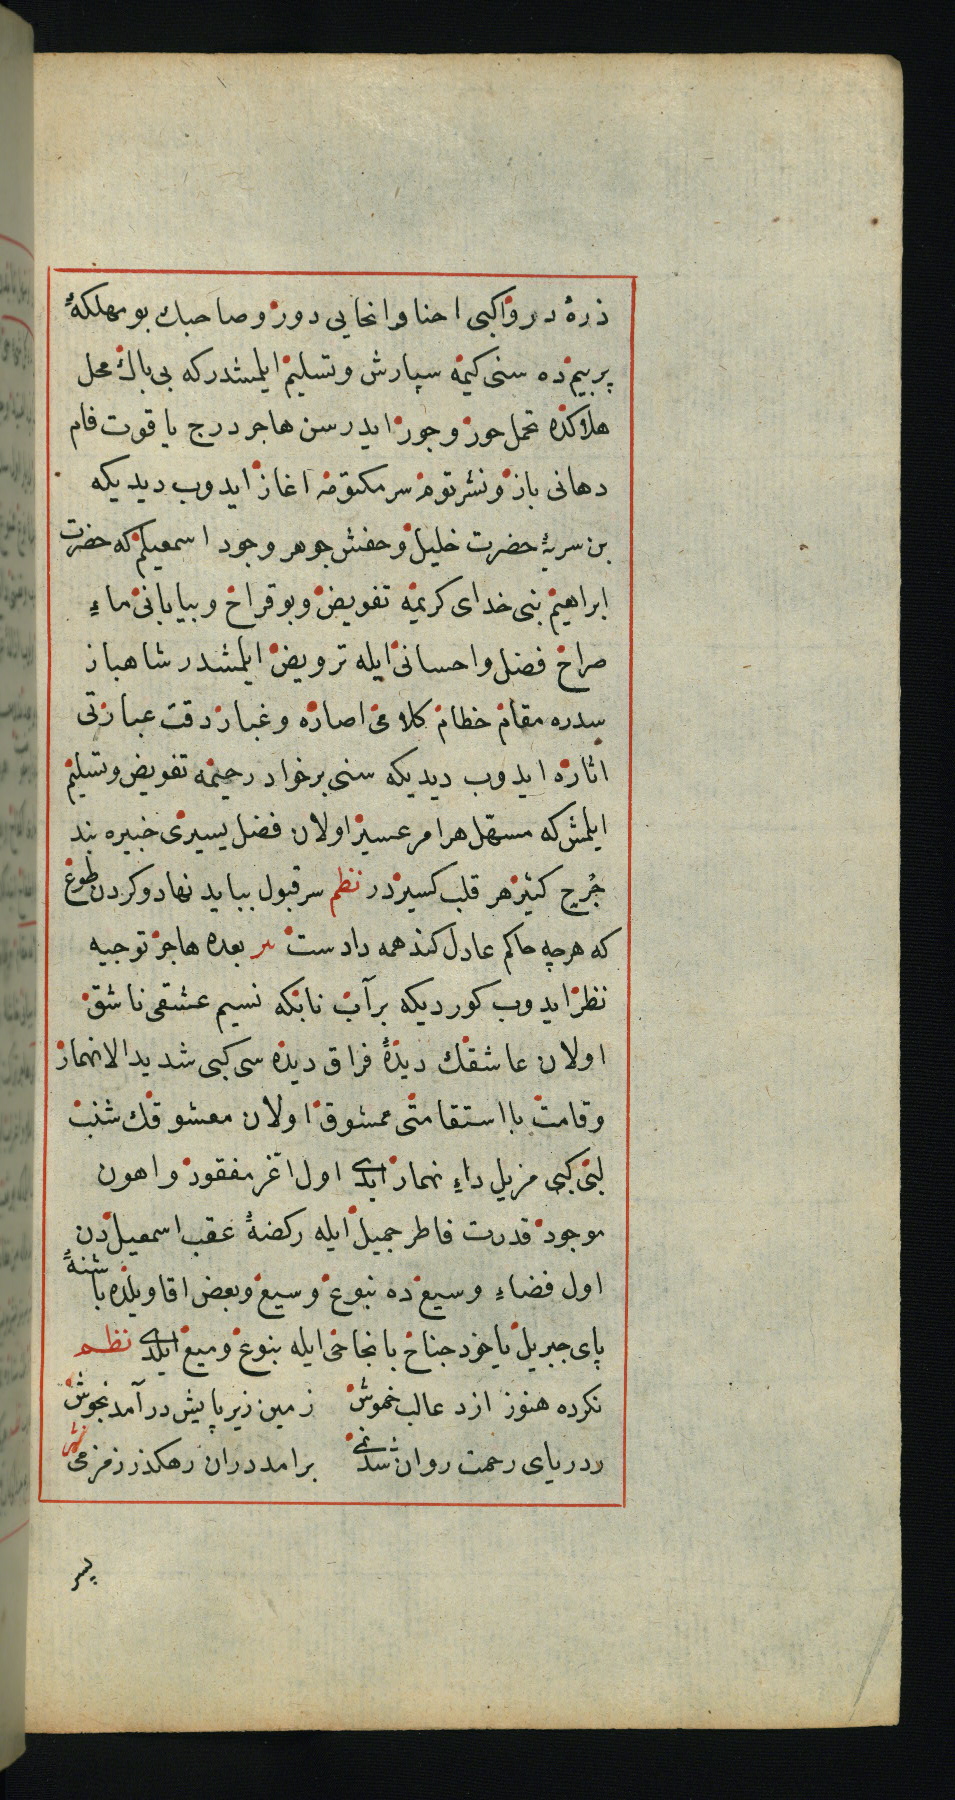 ذرهٔ درواكبی احنا وانحایی دور وصاحبك بو مهلكهٔ
پربیمده سنی كیمه سپارش وتسلیم ایلمشدركه بی باك محل
هلاكده تحمل حور وجور ایدرسن هاجر درج یاقوت فام
دهانی باز ونشر توم سر مكتومه اغاز ایدوب دیدیكه
بن سریهٔ حضرت خلیل وحفش جوهر وجود اسمعیلم كه حضرت
ابراهیم بنی خدای كریمه تفویض وبو قراخ وبیابانی ماء
صراخ فضل واحسانی ایله ترویض ایلمشدر شاهباز
سدره مقام خطام كلامی اصاره وغبار دقت عبارتی
اثاره ایدوب دیدیكه سنی برخواد رحیمه تفویض وتسلیم
ایلمش كه مسهّل هر امر عسیر اولان فضل یسیری خبیره بند
جُرح كثیر هر قلب كسیردر نظم سر قبول بباید نهاد وكردن طوع
كه هرچه حاكم عادل كند همه دادست نثر بعده هاجر توجیه
نظر ایدوب كوردیكه برآب نابكه نسیم عشقی ناشق
اولان عاشقك دیدهٔ فراق دیده سی كبی شدید الانهمار
وقامت بااستقامتی ممشوق اولان معشوقك شنب
لبی كبی مزیل داء نهمار ایدی اول اعز مفقود واهون
موجود قدرت فاطر جمیل ایله ركضهٔ عقب اسمعیلدن
اول فضاء وسیعده نبوع وسیع وبعض اقاویلده با شنهٔ
پای جبریل یاخود جناح بانجاحی ایله بنوع ومیع ایلدی نظم
نكرده هنوز ازد عالب خموش زمین زیر پایش درآمد بجوش
ردریای رحمت روان شد نمی برامد دران رهكذر زمزمی نثر
پسر